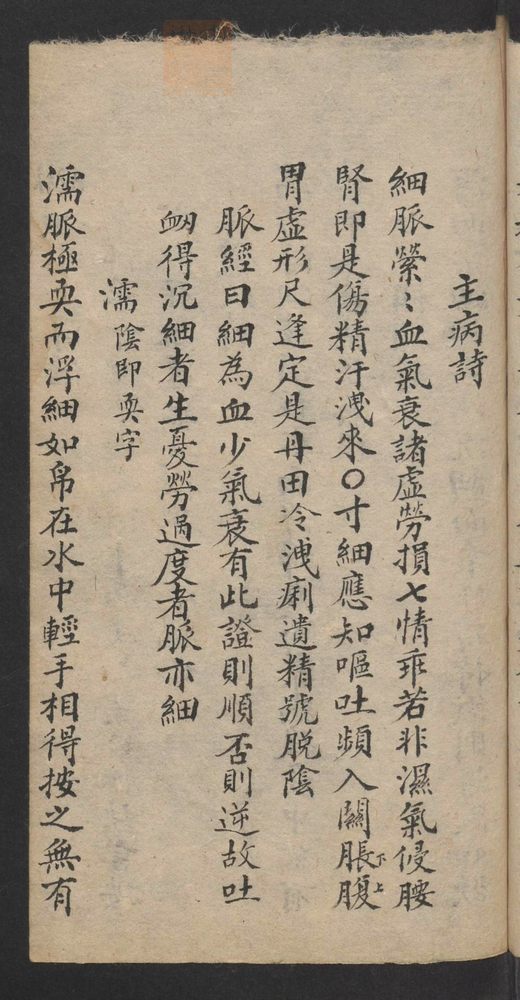 主病詩
細脈縈〻血氣衰諸虛勞損七情乖若非濕氣侵腰
腎即是傷精汗洩來〇寸細應知嘔吐頻入關脹腹下上
胃虛形尺逢定是丹田冷洩痢遺精號脱陰
脈經曰細為血少氣衰有此證則順否則逆故吐
衂得沉細者生憂勞過度者脈亦細
濡陰即耎字
濡脈極耎而浮細如帛在水中輕手相得按之無有